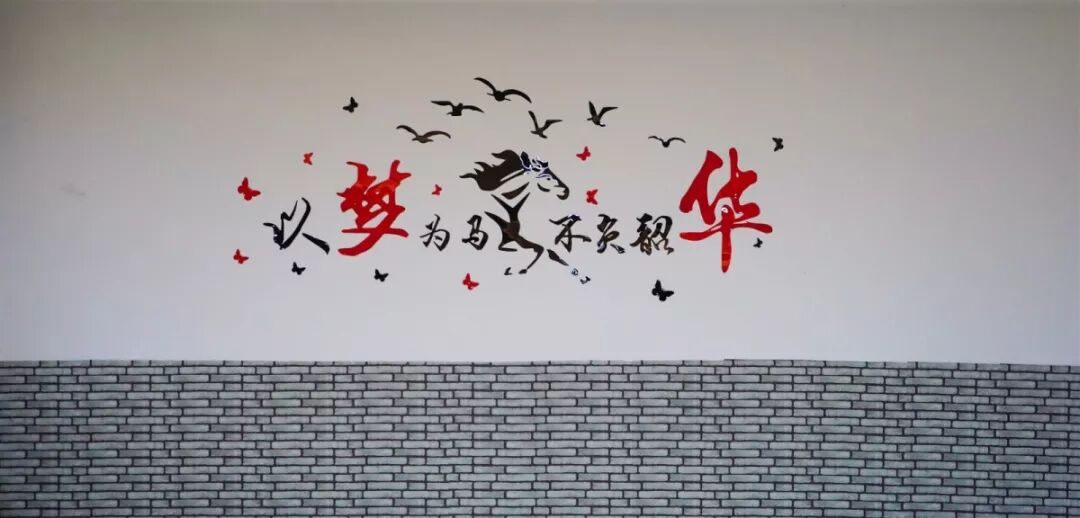 以梦为马不负韶华